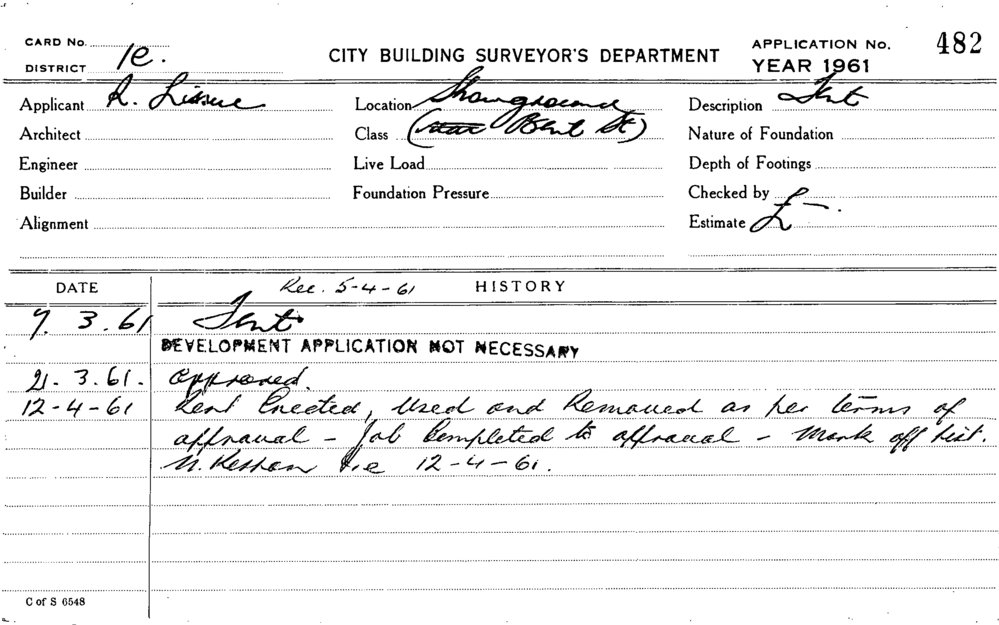 CARD No.
DISTRICT 1e.
CITY BUILDING SURVEYOR'S DEPARTMENT
APPLICATION No. 482
YEAR 1961
Applicant R.
Location Showground
Description Tent
Architect
Class (near Bent St)
Nature of Foundation
Engineer
Live Load
Depth of Footings
Builder
Foundation Pressure
Checked by
Alignment
Estimate £ -.
DATE
Rec. 5-4-61
HISTORY
7. 3. 61 Tent
DEVELOPMENT APPLICATION NOT NECESSARY
21. 3. 61. approved.
12-4-61 Tent Erected, Used and Removed as per terms of
approval - Job Completed to approval - Mark off list.
1e 12-4-61.
C of S 6548